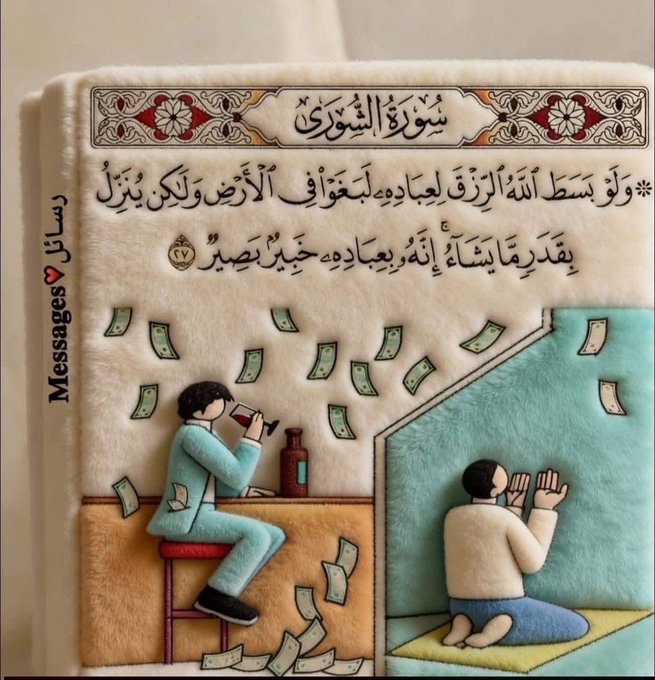 سُورَةُ الشُّورَىٰ
۞ وَلَوْ بَسَطَ ٱللَّهُ ٱلرِّزْقَ لِعِبَادِهِۦ لَبَغَوْا۟ فِى ٱلْأَرْضِ وَلَـٰكِن يُنَزِّلُ
بِقَدَرٍ مَّا يَشَآءُ ۚ إِنَّهُۥ بِعِبَادِهِۦ خَبِيرٌۢ بَصِيرٌ ٢٧
Messages♥رسائل